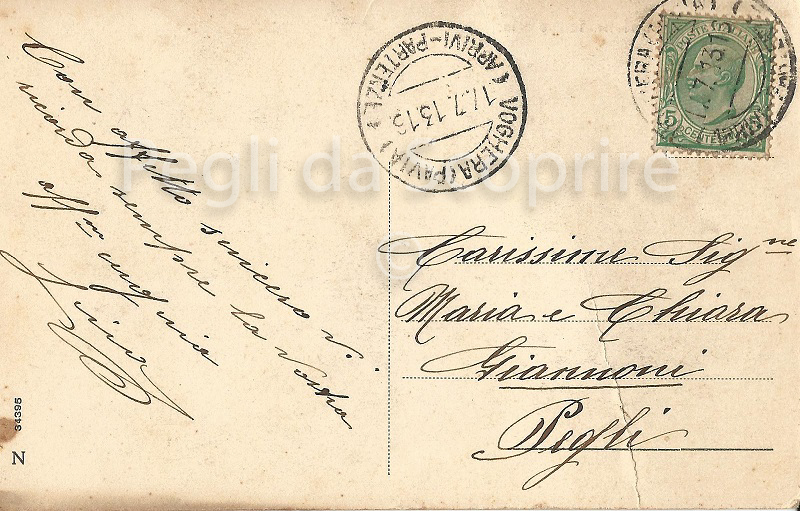 Con affetto sincero vi
ricorda sempre la vostra
aff.ma cugina
VOGHERA (PAVIA)
(ARRIVI-PARTENZE)
17.7.13.16
POSTE ITALIANE
5
CENT
Pegli da Scoprire
©
Carissime Sig.ne
Maria e Chiara
Giannoni
Pegli
34395
N